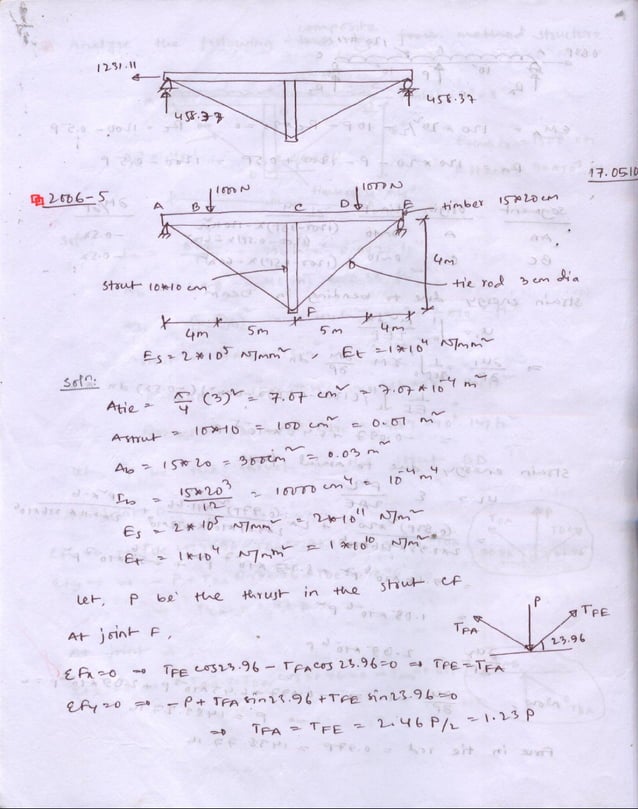 1231.11
458.37
458.37
17.0510
2006-5
1000N
1000N
A B C D E
timber 15*20cm
strut 10*10 cm
4m
tie rod 3 cm dia
F
4m 5m 5m 4m
Es = 2*10⁵ N/mm² , Et = 1*10⁴ N/mm²
Solⁿ:
Atie = π/4 (3)² = 7.07 cm² = 7.07*10⁻⁴ m²
Astrut = 10*10 = 100 cm² = 0.01 m²
Ab = 15*20 = 300cm² = 0.03 m²
Ib = 15*20³/12 = 10000 cm⁴ = 10⁻⁴ m⁴
Es = 2*10⁵ N/mm² = 2*10¹¹ N/m²
Et = 1*10⁴ N/mm² = 1*10¹⁰ N/m²
Let, P be the thrust in the strut CF
At joint F,
P
TFA TFE
23.96
ΣFx=0 ⇒ TFE cos23.96 - TFA cos 23.96=0 ⇒ TFE=TFA
ΣFy=0 ⇒ -P+TFA sin23.96+TFE sin23.96=0
⇒ TFA = TFE = 2.46 P/2 = 1.23 P